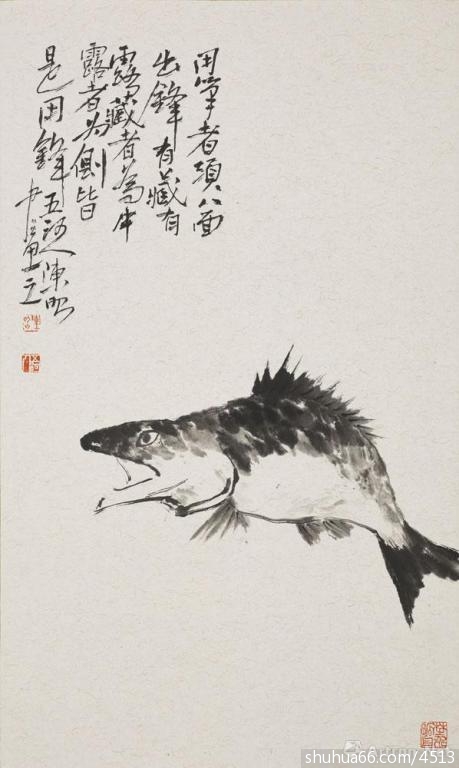 用笔者须八面
出锋有藏有
露藏者为中
露者为侧皆
是用锋五河人陈昭
shuhua66.com/4513